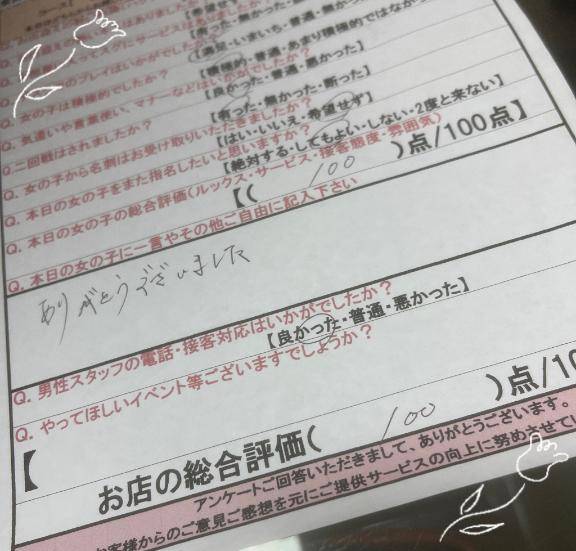 コース【
Q. 女の子のプレイはいかがでしたか?
【満足・いまいち・普通・無か
Q. 女の子は積極的でしたか?
【積極的・普通・あまり積極的ではなか
Q. 気遣いや言葉使い、マナーなどはいかがでしたか?
【良かった・普通・悪かった】
Q. 二回戦はされましたか?
【有った・無かった・断った】
Q. 女の子から名刺はお受け取りいただきましたか?
【はい・いいえ・希望せず】
Q. 本日の女の子をまた指名したいと思いますか?
【絶対する・してもよい・しない・2度と来ない】
Q. 本日の女の子の総合評価(ルックス・サービス・接客態度・雰囲気)
【( 100 )点/100点】
Q. 本日の女の子に一言やその他ご自由に記入下さい
ありがとうございました
Q. 男性スタッフの電話・接客対応はいかがでしたか?
【良かった・普通・悪かった】
Q. やってほしいイベント等ございますでしょうか?
【
お店の総合評価( 100 )点/10
アンケートご回答いただきまして、ありがとうございます。
お客様からのご意見ご感想を元にご提供サービスの向上に努めさせてい